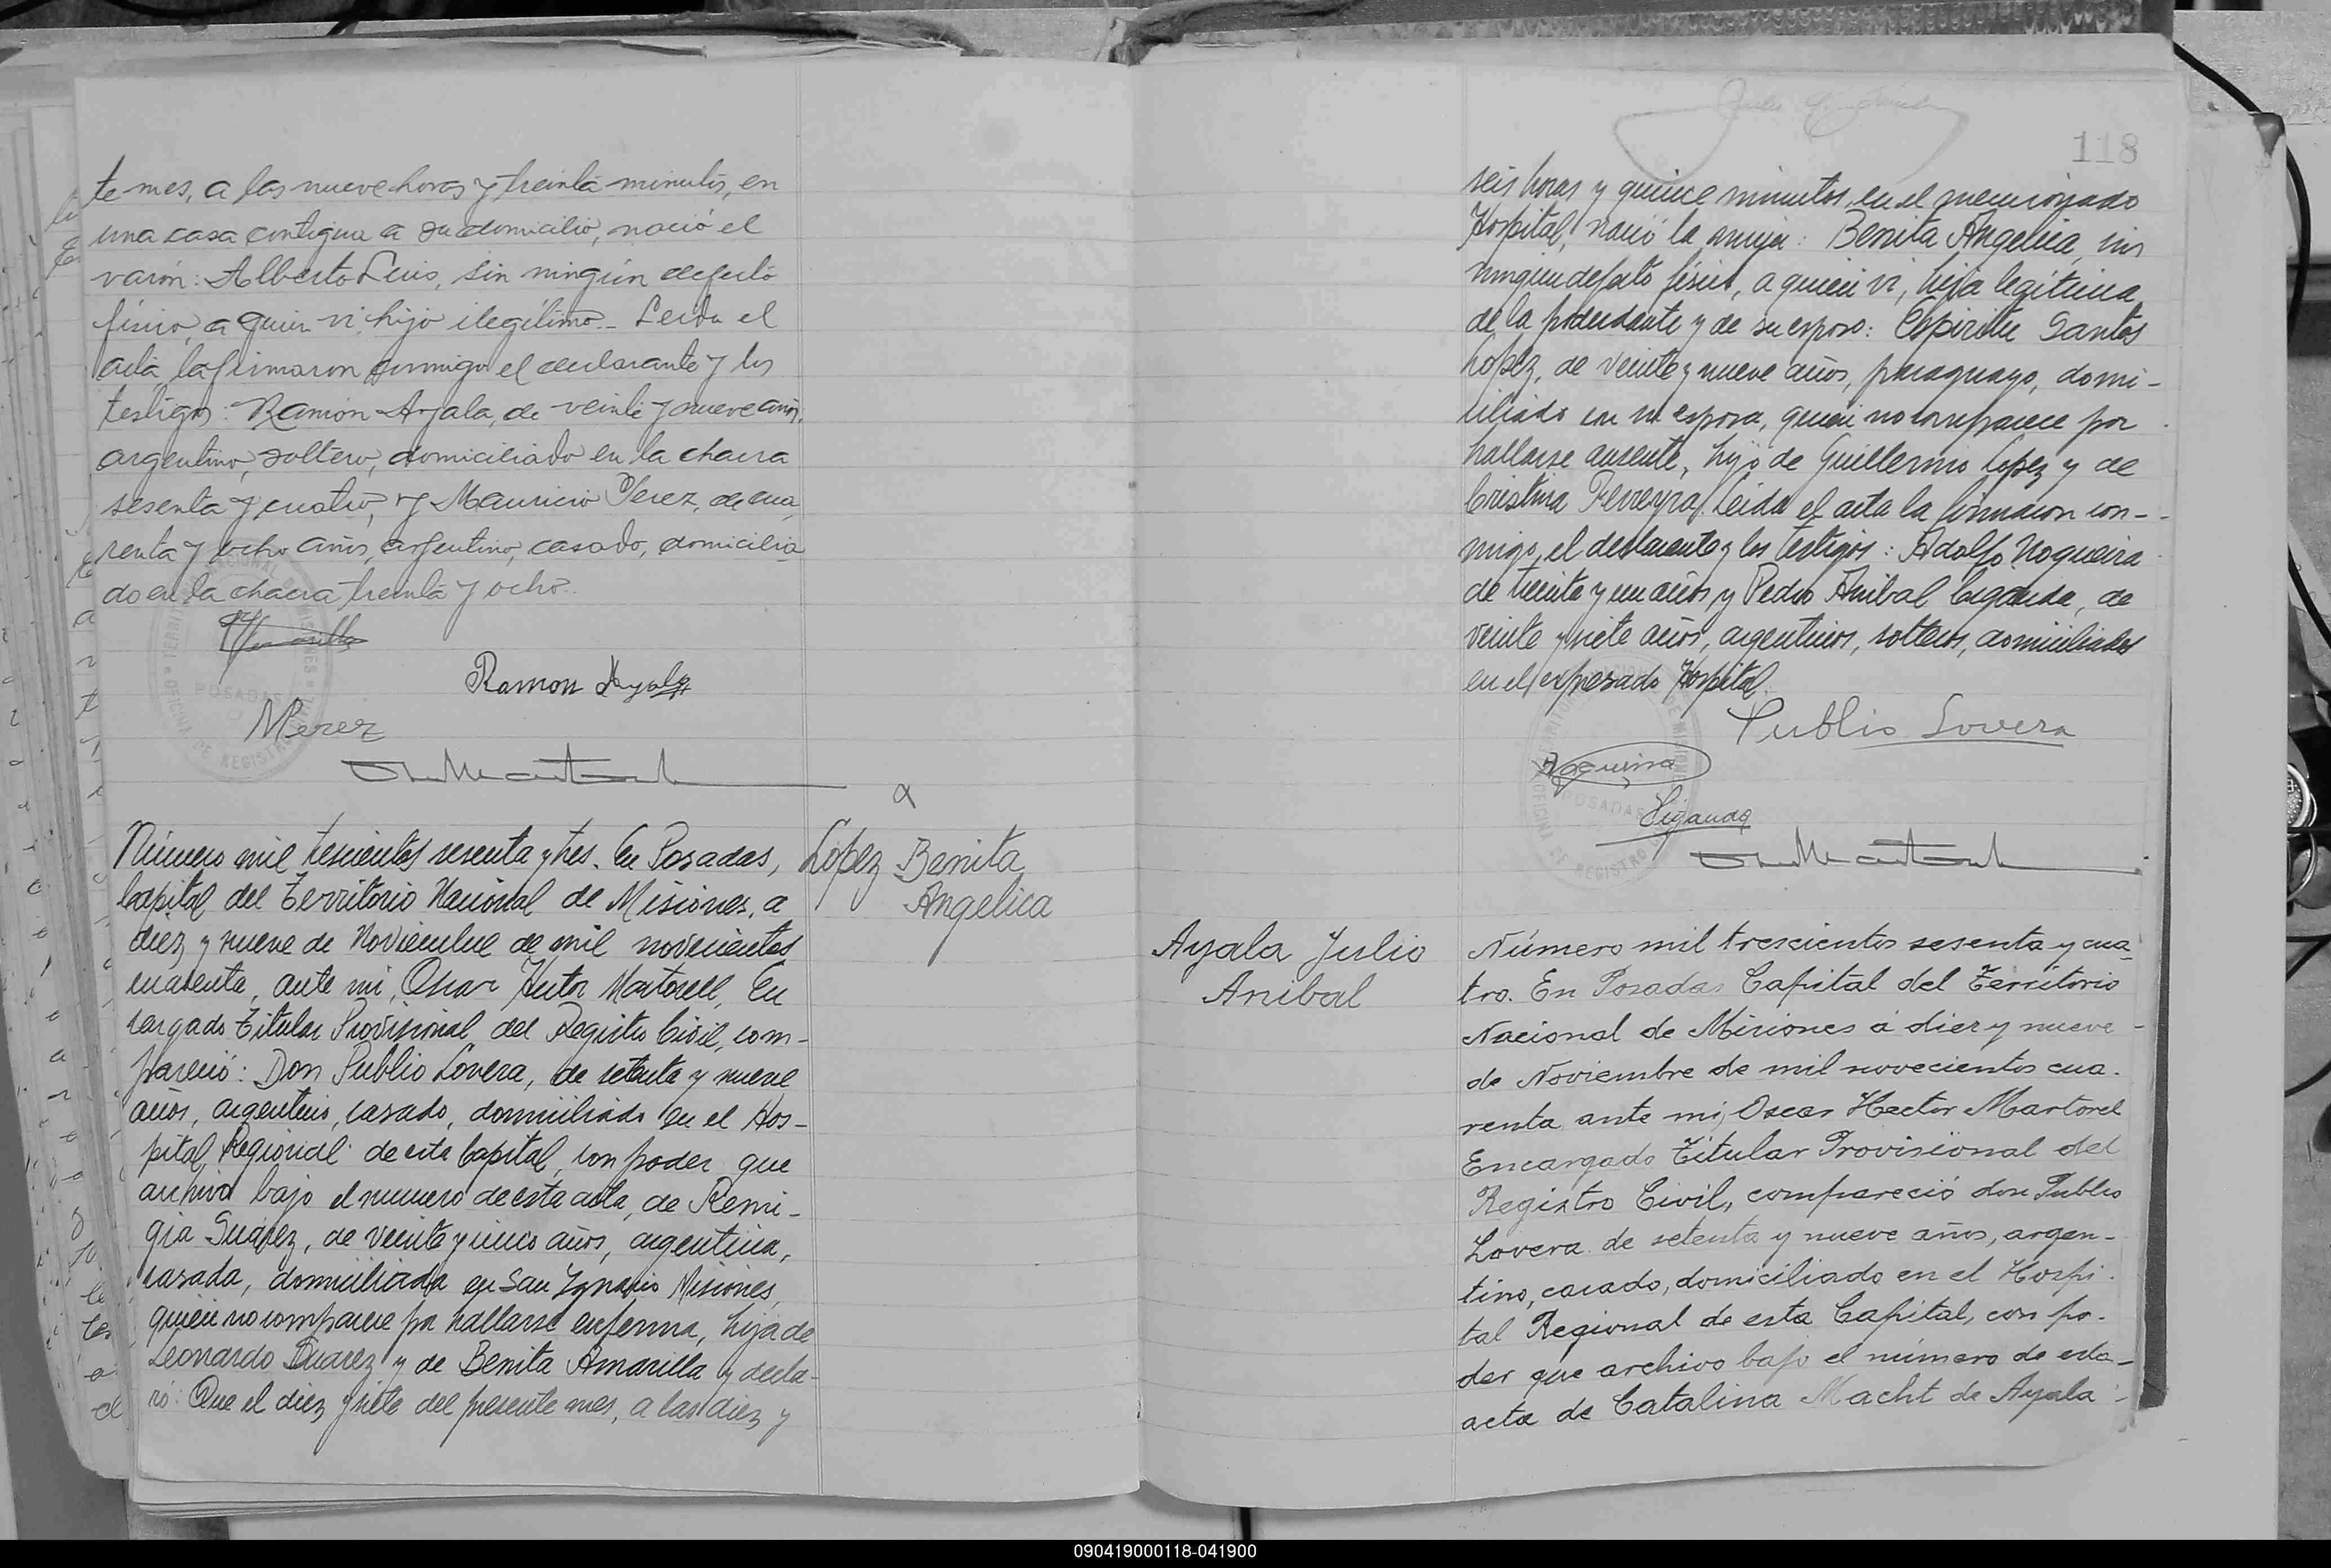 te mes, a las nueve horas y treinta minutos, en
una casa contigua a su domicilio, nació el
varón: Alberto Luis, sin ningún defecto
físico, a quien vi, hijo ilegítimo.- Leida el
acta la firmaron conmigo el declarante y los
testigos: Ramón Ayala, de veinte y nueve años,
argentino, soltero, domiciliado en la chacra
sesenta y cuatro, y Mauricio Perez, de cua
renta y ocho años, argentino, casado, domicilia
do en la chacra treinta y ocho.
Ramon Ayala
MPerez
POSADAS
α
Número mil trescientos sesenta y tres. En Posadas,
Capital del Territorio Nacional de Misiones, a
diez y nueve de Noviembre de mil novecientos
cuarenta, ante mi, Oscar Hector Martorell, En
cargado Titular Provisional del Registro Civil, com-
pareció: Don Publio Lovera, de setenta y nueve
años, argentino, casado, domiciliado en el Hos-
pital Regional de esta Capital, con poder que
archivo bajo el numero de esta acta, de Remi-
gia Suarez, de veinte y cinco años, argentina,
casada, domiciliada en San Ignacio Misiones,
quien no comparece por hallarse enferma, hija de
Leonardo Suarez y de Benita Amarilla y decla-
ró: Que el diez y siete del presente mes, a las diez y
Lopez Benita
Angelica
118
seis horas y quince minutos, en el mencionado
Hospital, nació la mujer: Benita Angelica, sin
ningun defecto físico, a quien vi, hija legítima
de la poderdante y de su esposo: Espiritu Santos
Lopez, de veinte y nueve años, paraguayo, domi-
ciliado con su esposa, quien no comparece por
hallarse ausente, hijo de Guillermo Lopez y de
Cristina Ferreyra. Leida el acta la firmaron con-
migo, el declarante y los testigos: Adolfo Nogueira
de treinta y un años y Pedro Anibal Ciganda, de
veinte y siete años, argentinos, solteros, domiciliados
en el expresado Hospital.
Publio Lovera
Nogueira
Ciganda
POSADAS
Ayala Julio
Anibal
Número mil trescientos sesenta y cua-
tro. En Posadas Capital del Territorio
Nacional de Misiones á diez y nueve -
de Noviembre de mil novecientos cua.
renta ante mi, Oscar Hector Martorel
Encargado Titular Provisional del
Registro Civil, compareció don Publio
Lovera de setenta y nueve años, argen-
tino, casado, domiciliado en el Hospi.
tal Regional de esta Capital, con po.
der que archivo bajo el número de esta-
acta de Catalina Macht de Ayala -
090419000118-041900